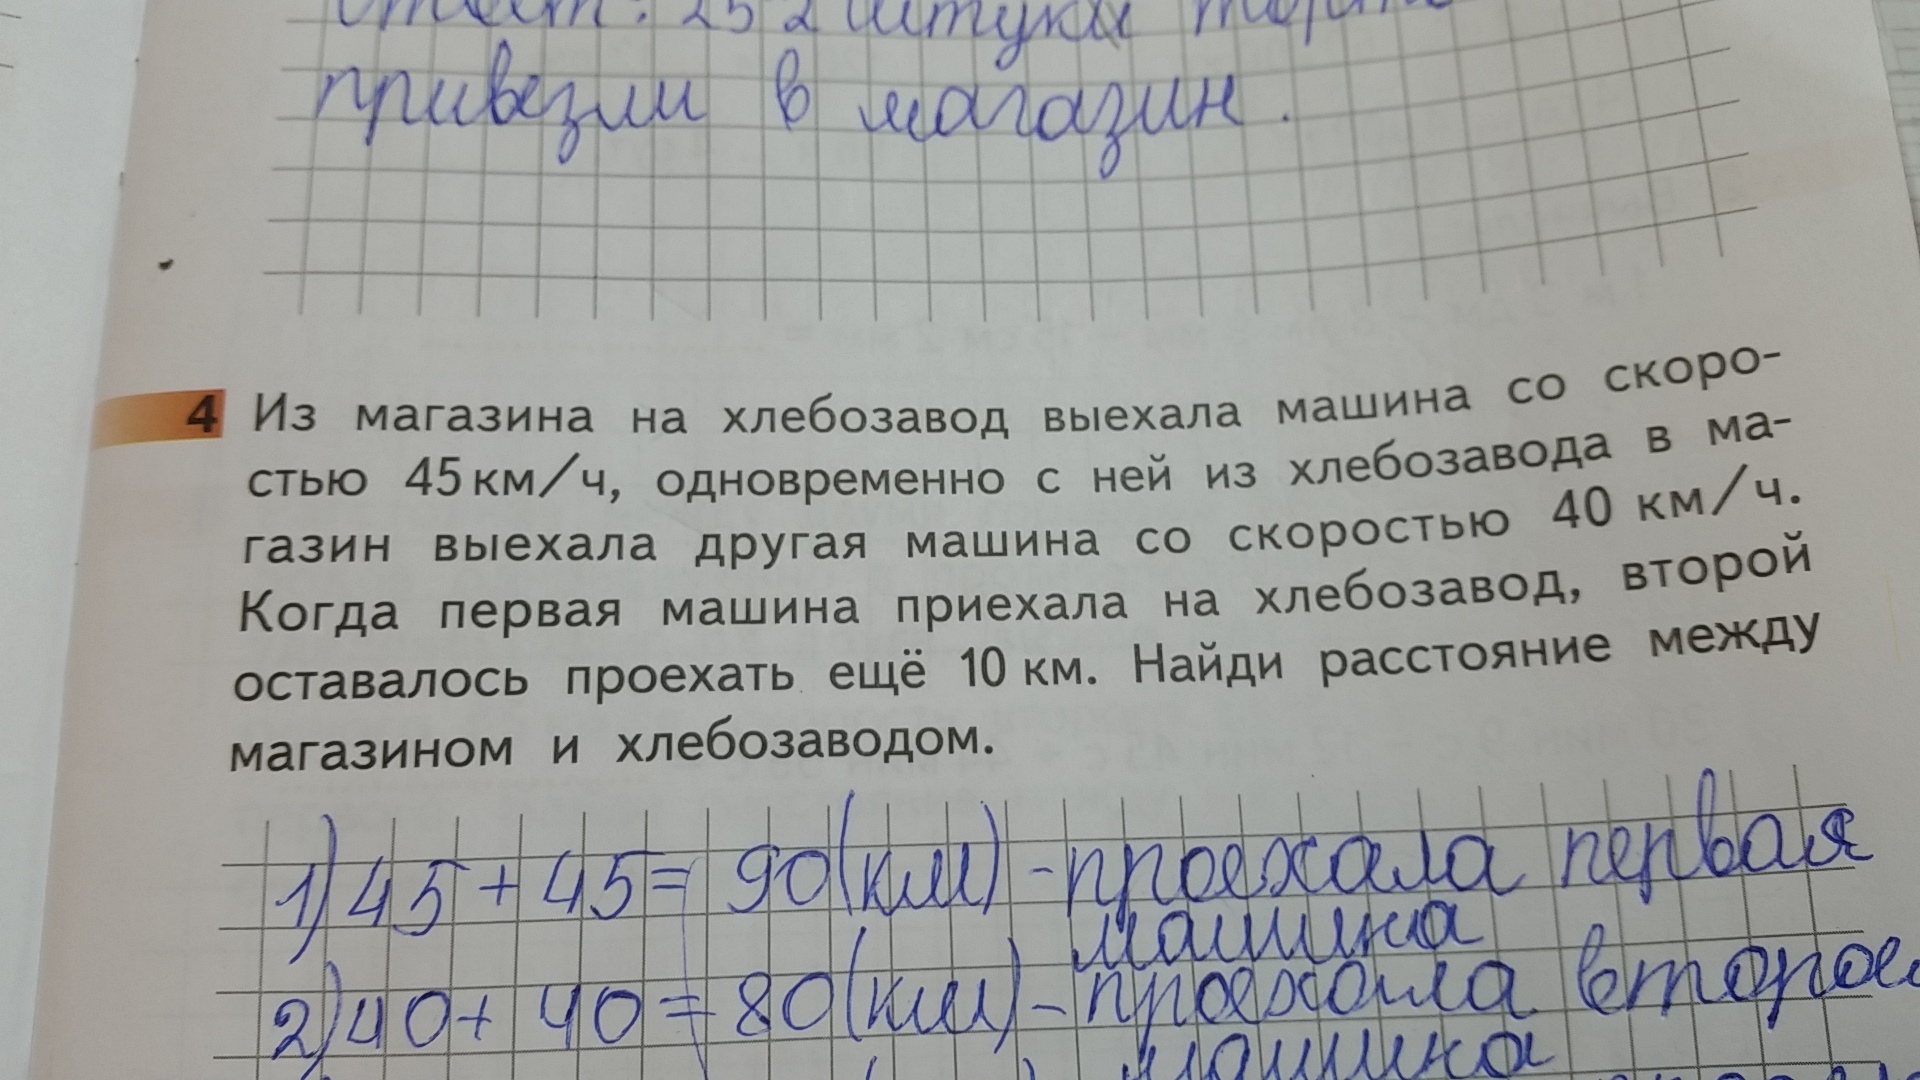 Ответ: 252 штуки
привезли в магазин.
4 Из магазина на хлебозавод выехала машина со скоро-
стью 45 км/ч, одновременно с ней из хлебозавода в ма-
газин выехала другая машина со скоростью 40 км/ч.
Когда первая машина приехала на хлебозавод, второй
оставалось проехать ещё 10 км. Найди расстояние между
магазином и хлебозаводом.
1) 45 + 45 = 90 (км) - проехала первая
машина
2) 40 + 40 = 80 (км) - проехала
машина